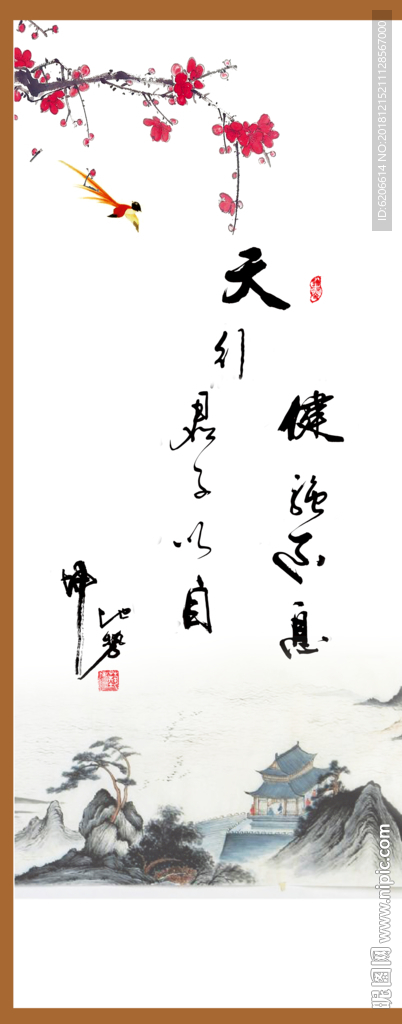 天行
健强不息
君子以自
地势
坤
ID:6206614 NO:20181215211128567000
昵图网 www.nipic.com